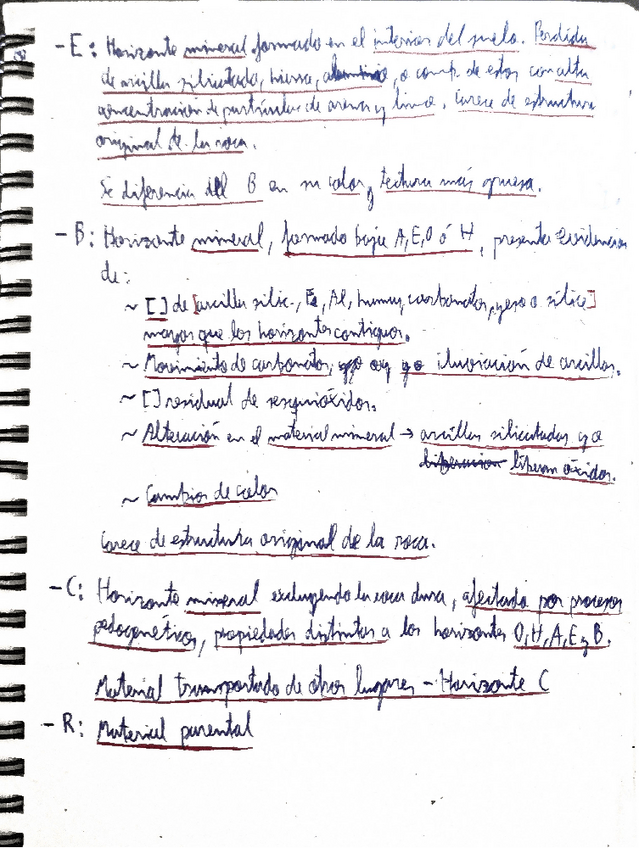 - E: Horizonte mineral formado en el interior del suelo. Perdida
de arcilla silicatada, hierro, aluminio, o comp. de estos con alta
concentración de partículas de arenas y limo. Carece de estructura
original de la roca.
Se diferencia del B en su color y textura más gruesa.
- B: Horizonte mineral, formado bajo A, E, O ó H, presenta evidencias
de:
~ [] de [arcillas silic., Fe, Al, humus, carbonatos, yeso o sílice]
mayor que los horizontes contiguos.
~ Movimiento de carbonatos, y/o iluviación de arcillas.
~ [] residual de sesquióxidos.
~ Alteración en el material mineral → arcillas silicatadas y/o
liberan óxidos.
~ Cambios de color
Carece de estructura original de la roca.
- C: Horizonte mineral excluyendo la roca dura, afectado por procesos
pedogenéticos, propiedades distintas a los horizontes O, H, A, E y B.
Material transportado de otros lugares - Horizonte C
- R: Material parental